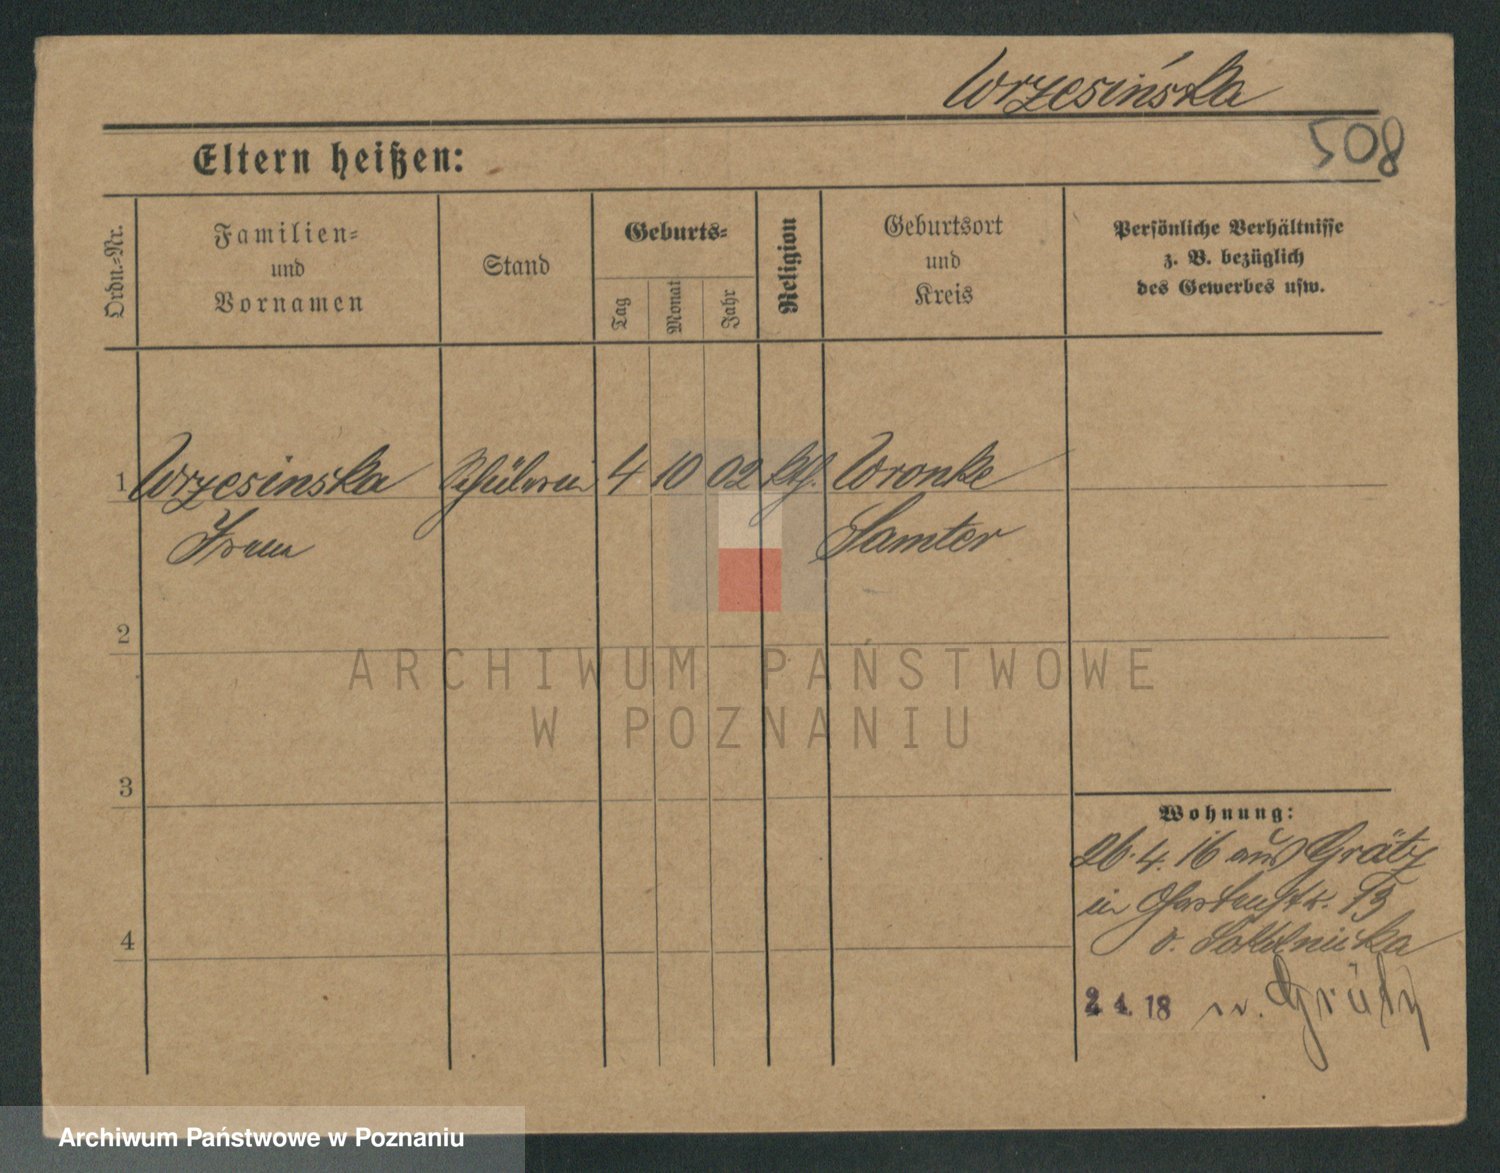 Wrzesińska
508
Eltern heißen:
Ordn.-Nr.
Familien-
und
Vornamen
Stand
Geburts-
Tag
Monat
Jahr
Religion
Geburtsort
und
Kreis
Persönliche Verhältnisse
z. B. bezüglich
des Gewerbes usw.
1 Wrzesinska Schülerin 4 10 02 kth. Wronke
Irena Samter
2
3
4
Wohnung:
26.4.16 aus Grätz
in Gartenstr. 13
b. Sokolnicka
2 4. 18 n. Grätz
ARCHIWUM PAŃSTWOWE
W POZNANIU
Archiwum Państwowe w Poznaniu